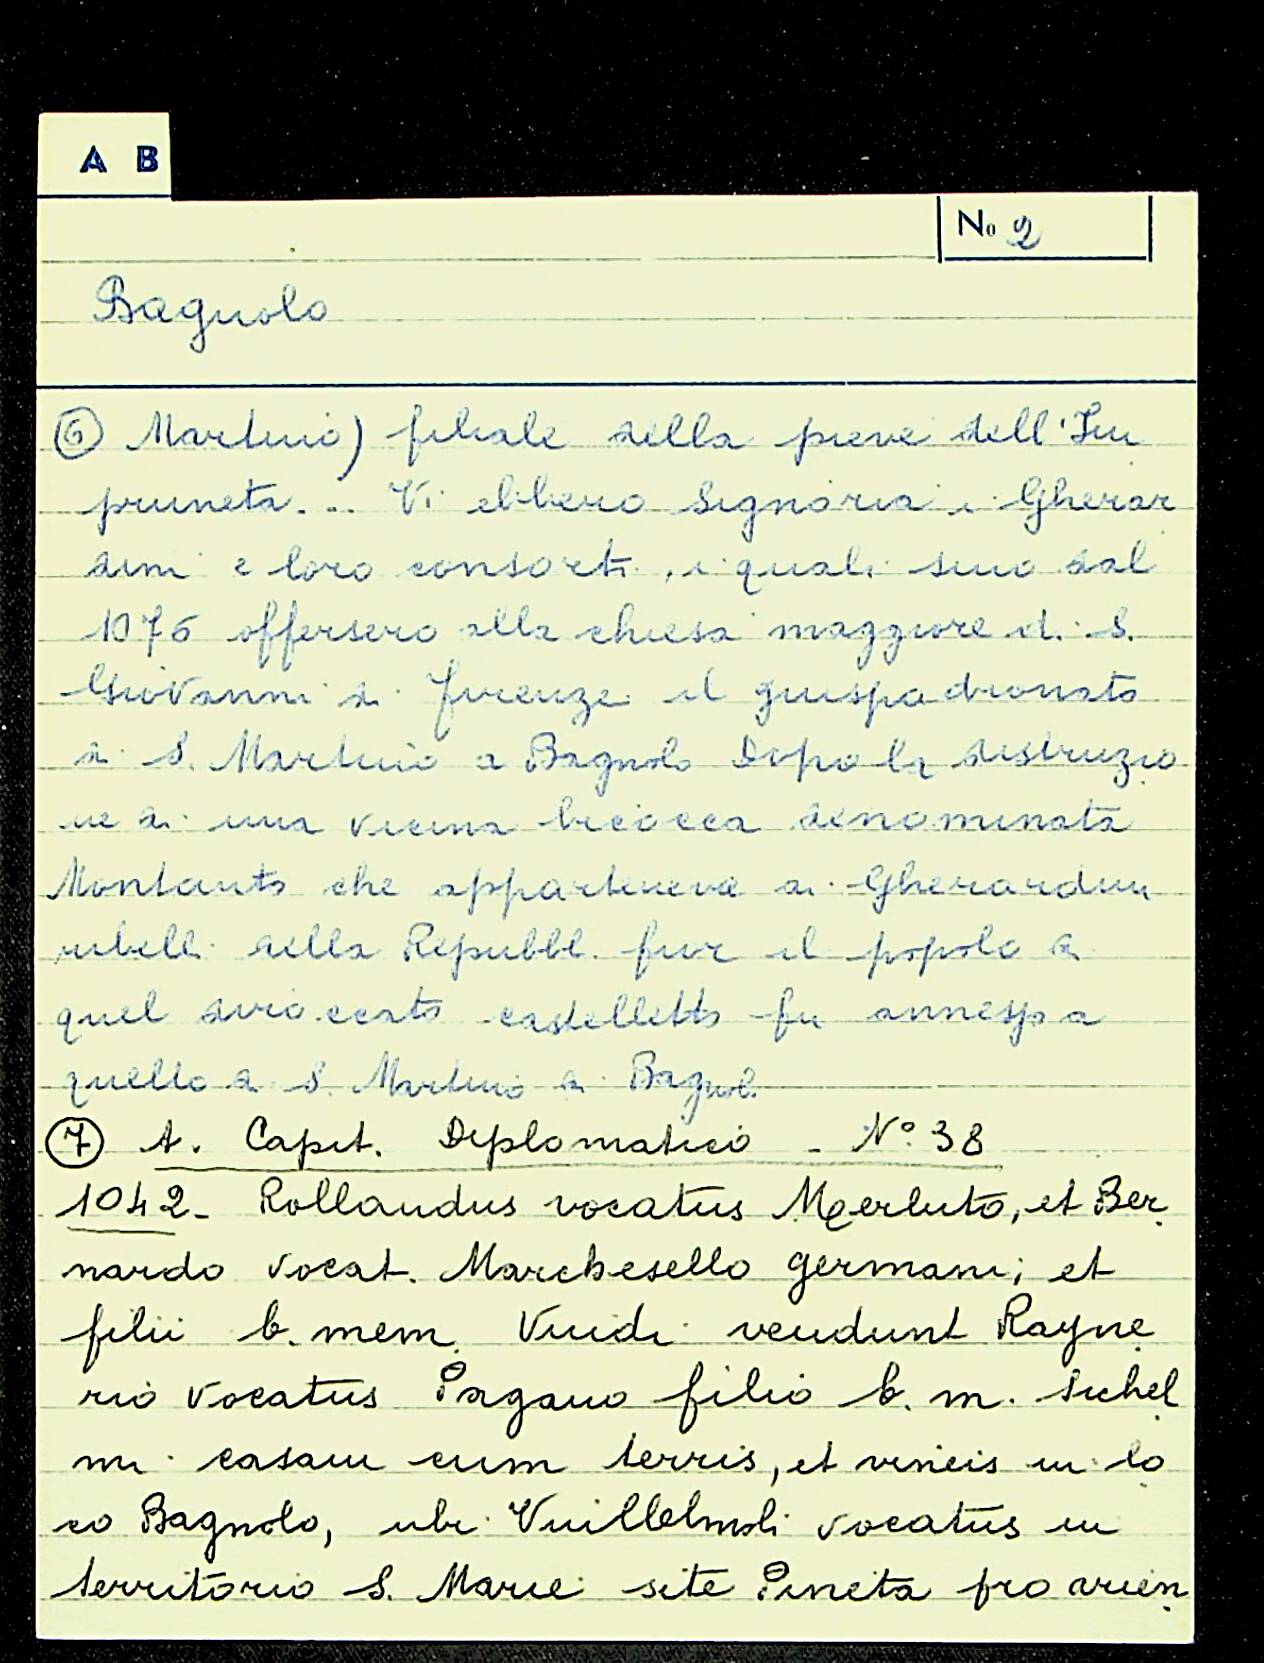 A B
No 2
Bagnolo
⑥ Martino) filiale della pieve dell'Im
pruneta... Vi ebbero signoria i Gherar
dini e loro consorti, i quali sino dal
1076 offersero alla chiesa maggiore di S.
Giovanni di Firenze il giuspadronato
di S. Martino a Bagnolo Dopo la distruzio
ne di una vicina bicocca denominata
Montauto che apparteneva ai Gherardini
ribelli della Repubbl. fior il popolo di
quel diroccato castelletto fu annesso a
quello di S. Martino a Bagnol.
⑦ A. Capit. Diplomatico - N° 38
1042 - Rollandus vocatus Merluto, et Ber
nardo vocat. Marchesello germani; et
filii b. mem. Vuidi vendunt Rayne
rio vocatus Pagano filio b. m. Sichel
mi casam cum terris, et vineis in lo
co Bagnolo, ubi Vuillelmoli vocatus in
territorio S. Marie site Pineta pro arien